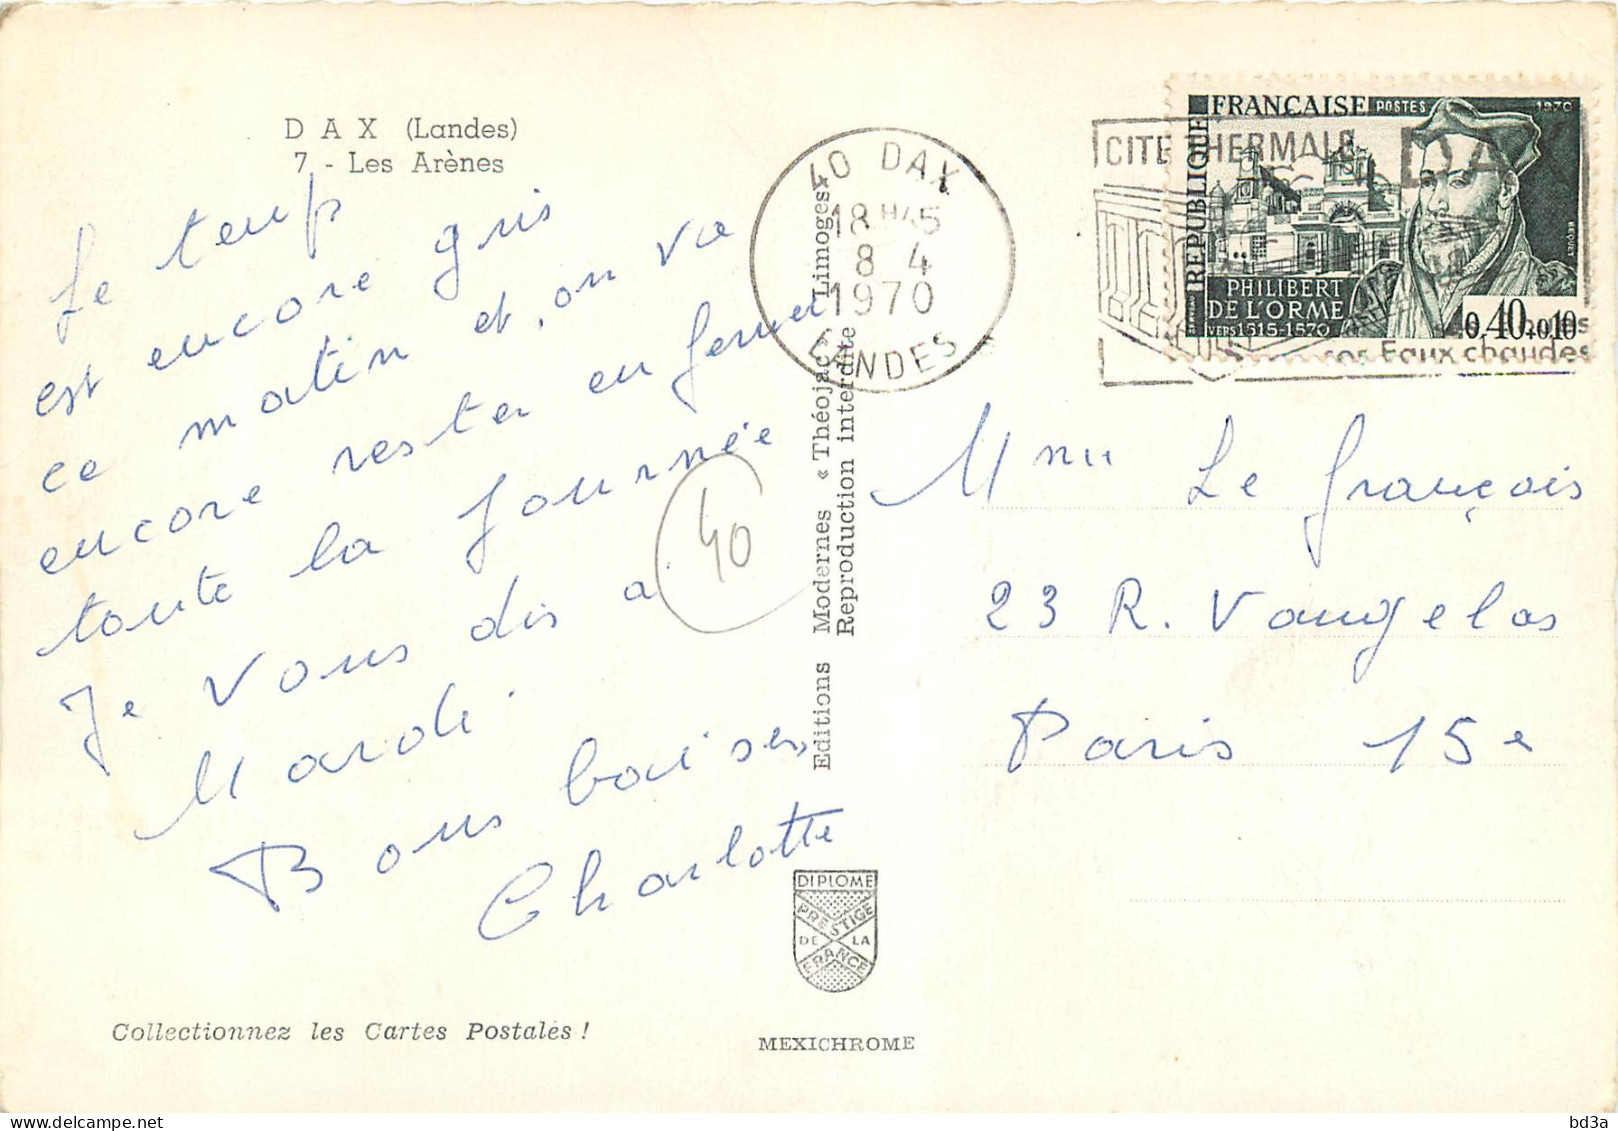 D A X (Landes)
7 - Les Arènes
Le temps
est encore gris
ce matin et, on va
encore rester enfermer
toute la journée
Je vous dis a
Mardi.
Bons baisers,
Charlotte
40
Collectionnez les Cartes Postales !
Editions Modernes « Théojac » Limoges
Reproduction interdite
DIPLOME
PRESTIGE
DE LA
FRANCE
MEXICHROME
40 DAX
18 H 45
8 4
1970
LANDES
CITE THERMALE DAX
ses Eaux chaudes
REPUBLIQUE FRANÇAISE POSTES 1970
PHILIBERT
DE L'ORME
VERS 1515-1570
0,40+0,10
Mme Le François
23 R. Vaugelas
Paris 15e
bd3a